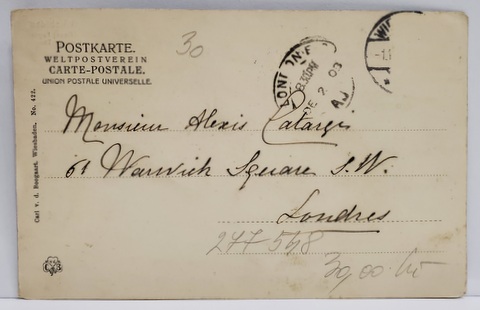 POSTKARTE.
WELTPOSTVEREIN
CARTE-POSTALE.
UNION POSTALE UNIVERSELLE.
30
LONDON
8.30AM
DE 2 03
AJ
WIE
Monsieur Alexis Catargi
61 Warwich Square S.W.
Londres
277548
30,00
Carl v. d. Boogaart. Wiesbaden. No. 422.